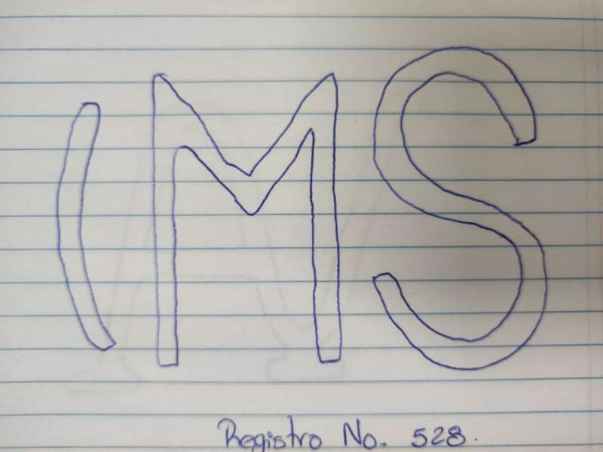 (MS
Registro No. 528.